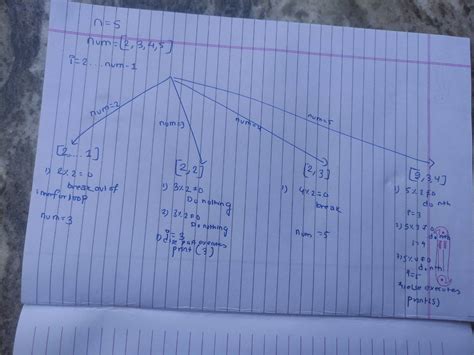 n=5
num=[2,3,4,5]
i=2...num-1
num=2
num=3
num=4
num=5
[2...1]
1) 2%2=0
break out of
inner for loop
num=3
[2,2]
1) 3%2≠0
Do nothing
2) 3%2≠0
Do nothing
i=3
print(3)
[2,3]
1) 4%2=0
break
num=5
[2,3,4]
1) 5%2≠0
do nth
i=3
2) 5%3≠0
do nth
i=4
3) 5%4≠0
do nth
i=5
else executes
print(5)